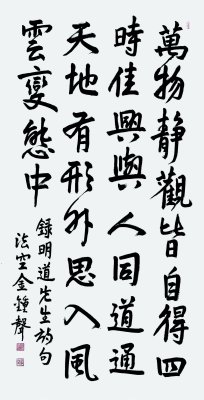 萬物静觀皆自得四
時佳興與人同道通
天地有形外思入風
雲變態中
錄明道先生詩句
法空金鍾聲